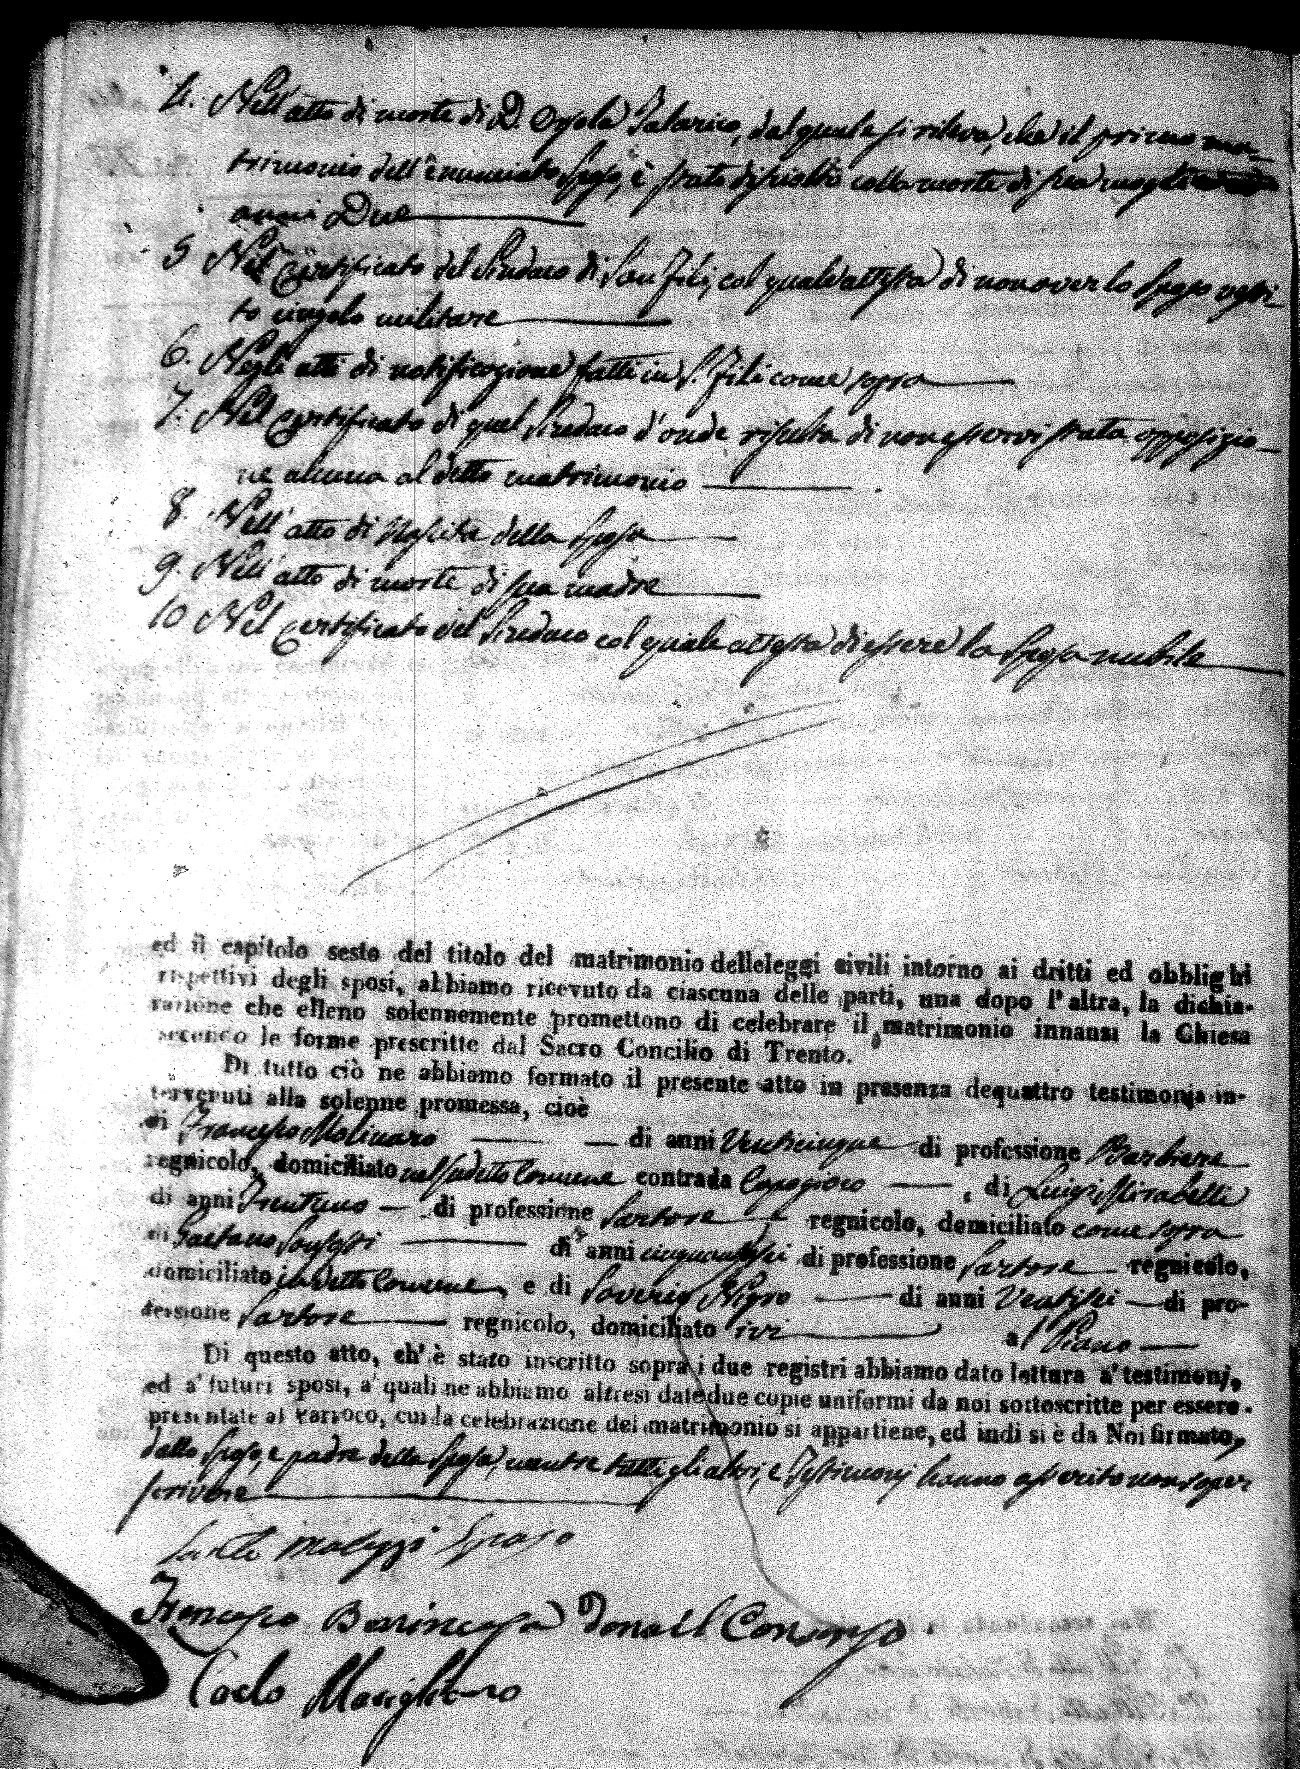 4. Nell'atto di morte di D. Orsola Talarico, dal quale si rileva, che il primo ma-
trimonio dell'enunciato sposo, è stato disciolto colla morte di sua moglie
anni Due
5 Nel certificato del Sindaco di San Fili, col quale attesta di non aver lo Sposo vesti-
to cingolo militare
6. Negli atti di notificazione fatti in S. Fili come sopra
7. Nel certificato di quel Sindaco d'onde risulta di non esservi stata opposizio-
ne alcuna al detto matrimonio
8. Nell'atto di Nascita della Sposa
9. Nell'atto di morte di sua madre
10 Nel certificato del Sindaco col quale attesta di essere la Sposa nubile
ed il capitolo sesto del titolo del matrimonio delle leggi civili intorno ai dritti ed obblighi
rispettivi degli sposi, abbiamo ricevuto da ciascuna delle parti, una dopo l'altra, la dichia-
razione che elleno solennemente promettono di celebrare il matrimonio innanzi la Chiesa
secondo le forme prescritte dal Sacro Concilio di Trento.
Di tutto ciò ne abbiamo formato il presente atto in presenza de quattro testimonj in-
tervenuti alla solenne promessa, cioè
di Francesco Molinaro di anni Venticinque di professione Barbiere
regnicolo, domiciliato nel sudetto Comune contrada , di Luigi Mirabelli
di anni Trentuno di professione Sartore regnicolo, domiciliato come sopra
di Gaetano di anni cinquantasei di professione Sartore regnicolo,
domiciliato in detto Comune, e di Saverio Nigro di anni Ventisei di pro-
fessione Sartore regnicolo, domiciliato ivi al Piano
Di questo atto, ch'è stato inscritto sopra i due registri abbiamo dato lettura a' testimonj,
ed a' futuri sposi, a' quali ne abbiamo altresì date due copie uniformi da noi sottoscritte per essere
presentate al Parroco, cui la celebrazione del matrimonio si appartiene, ed indi si è da Noi firmato,
dallo Sposo, e padre della Sposa, mentre tutti gli altri, e Testimonj hanno asserito non saper
scrivere
Sante Sposo
Francesco Bonincosa
Carlo